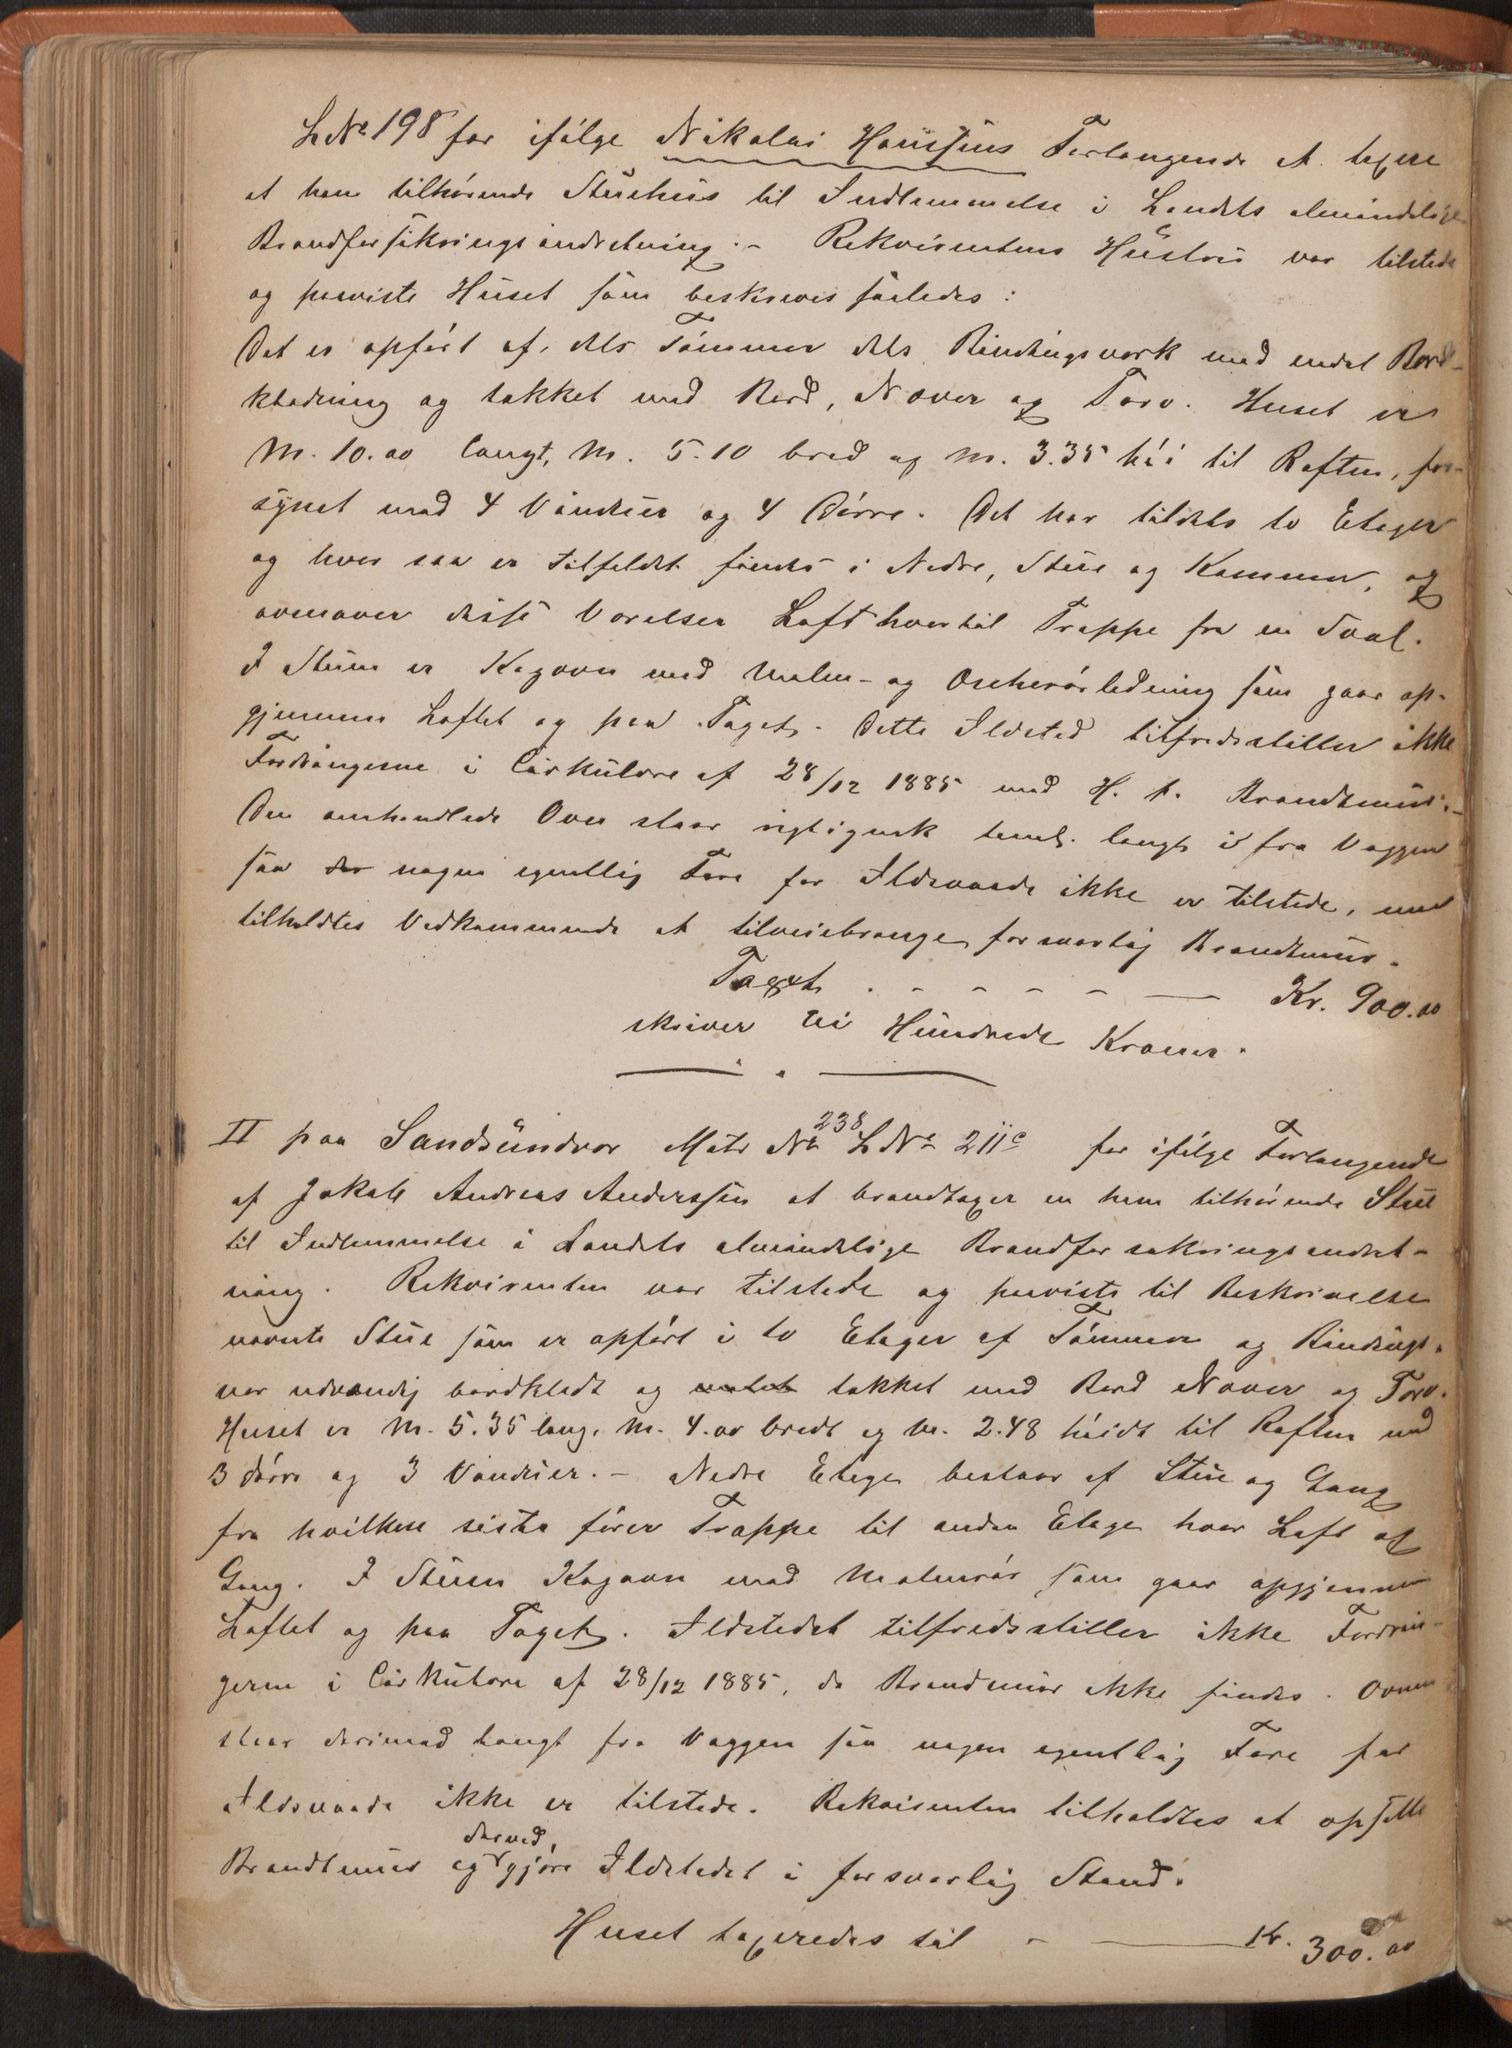 L№ 198 for ifölge Nikolai Hanssens Forlangende at taxere
et ham tilhörende Stuehus til Indlemmelse i Landets almindelige
Brandforsikringsindretning. – Rekvirentens Hustru var tilstede
og paaviste Huset som beskrives saaledes:
Det er opfört af, dels Tömmer dels Bindingsverk med endel Bord-
klædning og tækket med Bord, Næver og Torv. Huset er
M. 10.00 langt, M. 5.10 bred og M. 3.35 höi til Raften, for-
synet med 4 Vinduer og 4 Dörre. Det har tildels to Etager
og hvor saa er Tilfeldet findes i Nedre, Stue og Kammer, og
ovenover disse Værelser Loft hvortil Trappe fra en Sval.
I Stuen er Kogovn med Malm- og Ovnsrörledning som gaar op-
gjennem Loftet og paa Taget. Dette Ildsted tilfredsstiller ikke
Fordringerne i Cirkulære af 28/12 1885 med H. t. Brandmur. –
Den omhandlede Ovn staar rigtignok temel. langt i fra Væggen
saa der nogen egentlig Fare for Ildsvaade ikke er tilstede, men
tilholdtes Vedkommende at tilveiebringe forsvarlig Brandtmur.
Taxt . - - - - — Kr. 900.00
skriver Ni Hundrede Kroner.
II paa Sandsundvær Matr № 238 L№ 211c for ifölge Forlangende
af Jakob Andreas Anderssen at brandtaxer en ham tilhörende Stue
til Indlemmelse i Landets almindelige Brandforsikringsindret-
ning. Rekvirenten var tilstede og paaviste til Beskrivelse
nævnte Stue som er opfört i to Etager af Tömmer og Bindings-
ver udvendig bordkledt og tækket med Bord Næver og Torv.
Huset er M. 5.35 lang, M. 4.00 bredt og M. 2.48 höidt til Raften med
3 Dörre og 3 Vinduer. – Nedre Etage bestaar af Stue og Gang
fra hvilken sidste förer Trappe til anden Etage hvor Loft og
Gang. I Stuen Kogovn med Malmrör som gaar opgjennem
Loftet og paa Taget. Ildstedet tilfredsstiller ikke Fordrin-
gerne i Cirkulære af 28/12 1885, da Brandmur ikke findes. Ovnen
staar derimod langt fra Væggen saa nogen egentlig Fare for
Ildsvaade ikke er tilstede. Rekvirenten tilholdtes at opsette
Brandtmur og derved gjöre Ildstedet i forsvarlig Stand.
Huset taxeredes til - — Kr. 300.00